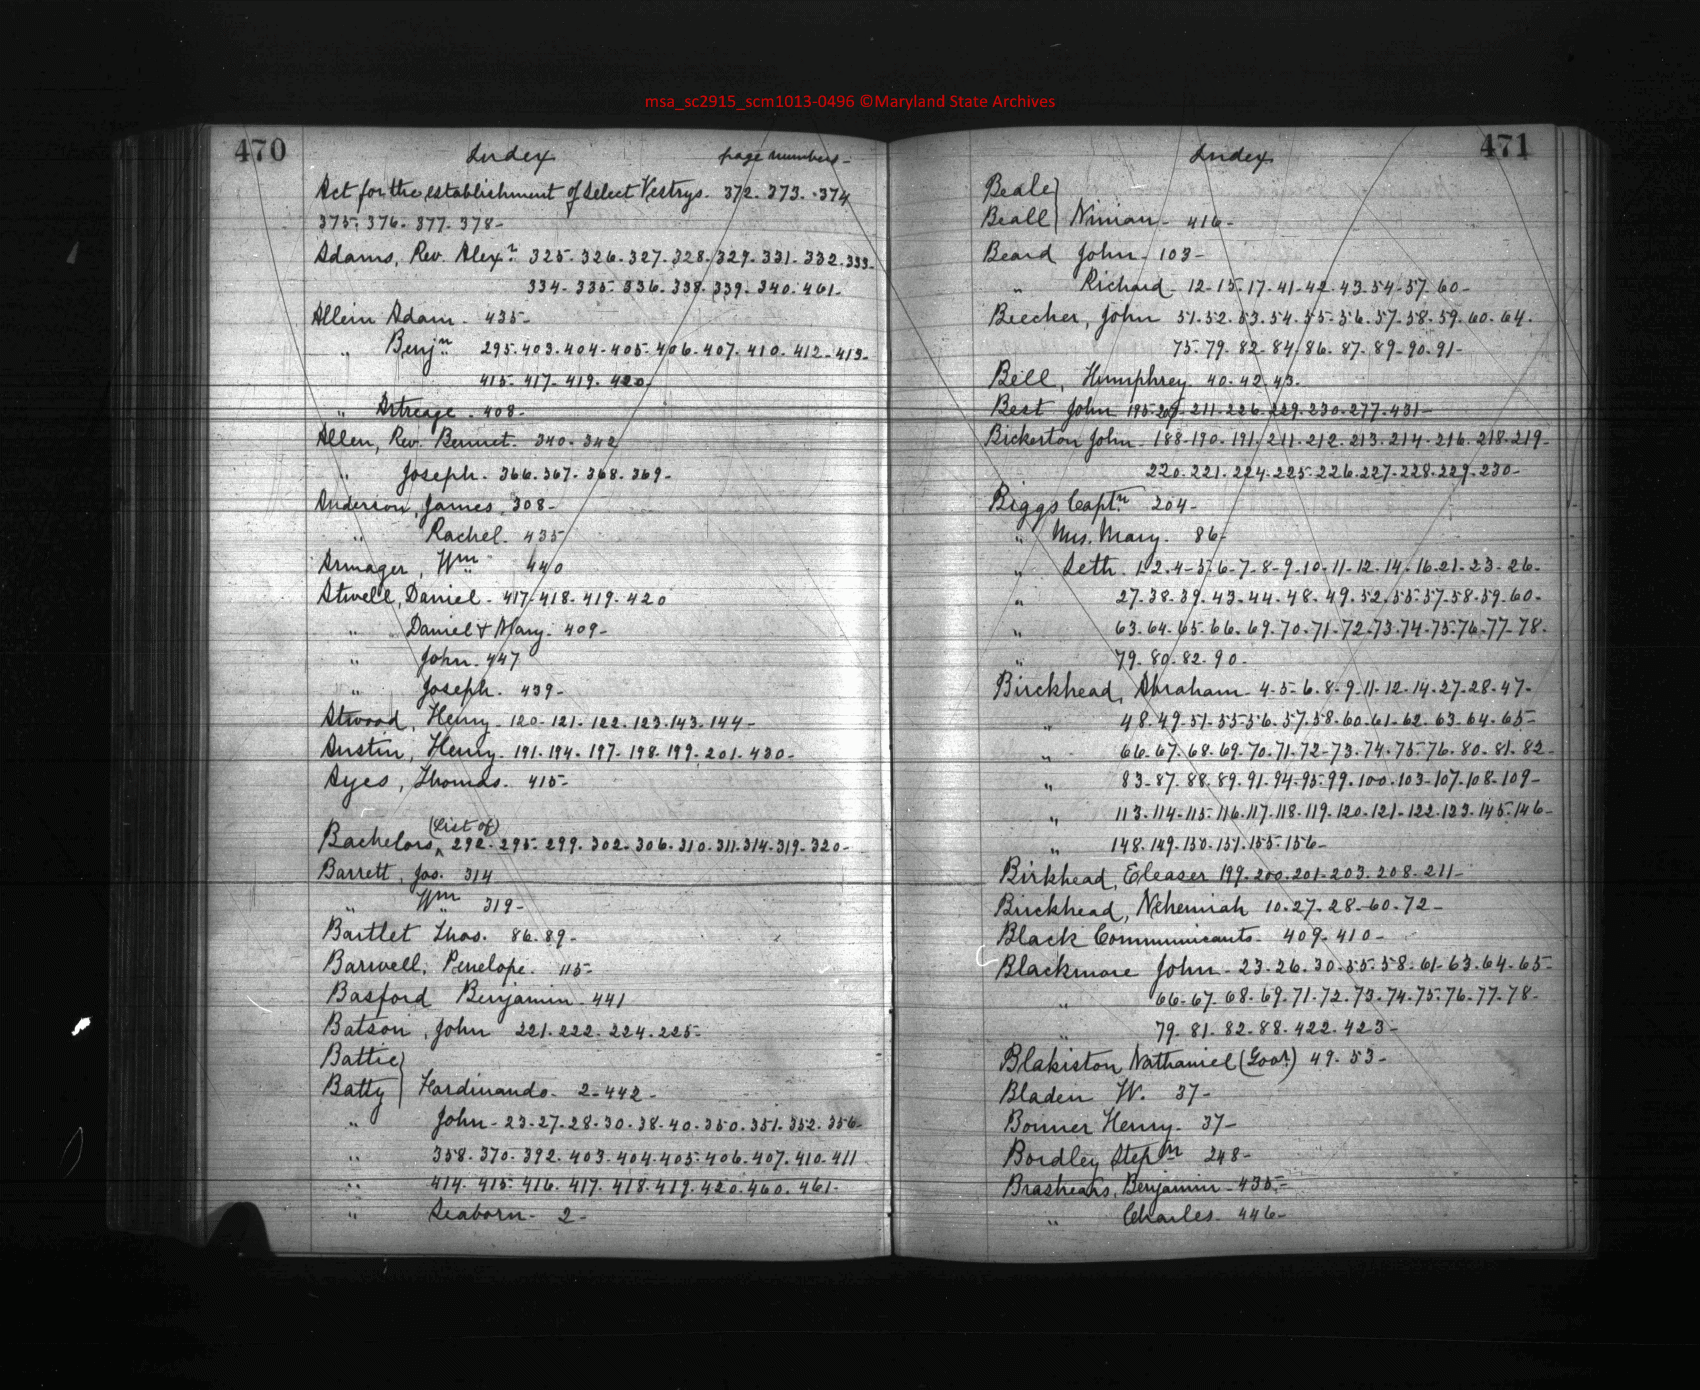 msa_sc2915_scm1013-0496 ©Maryland State Archives
470
Index page numbers-
Act for the establishment of Select Vestrys. 372. 373. 374
375. 376. 377. 378-
Adams, Rev. Alexr. 325. 326. 327. 328. 329. 331. 332. 333-
334. 335. 336. 338. 339. 340. 461-
Allein Adam. 435-
" Benjn. 295. 403. 404. 405. 406. 407. 410. 412. 413-
415. 417. 419. 420.
" Artreage. 408-
Allen, Rev. Bennet. 340. 342
" Joseph. 366. 367. 368. 369-
Anderson, James. 308-
" Rachel. 435-
Armager, Wm 440
Atwell, Daniel. 417. 418. 419. 420
" Daniel & Mary. 409-
" John. 447
" Joseph. 439-
Atwood, Henry. 120. 121. 122. 123. 143. 144-
Austin, Henry. 191. 194. 197. 198. 199. 201. 430-
Ayes, Thomas. 415-
(List of)
Bachelors, 292. 295. 299. 302. 306. 310. 311. 314. 319. 320-
Barrett, Jas. 314
" Wm 319-
Bartlet Thos. 86. 89-
Barwell, Penelope. 115-
Basford Benjamin. 441
Batson, John 221. 222. 224. 225-
Battie)
Batty) Fardinando. 2. 442-
" John. 23. 27. 28. 30. 38. 40. 350. 351. 352. 356-
" 358. 370. 392. 403. 404. 405. 406. 407. 410. 411
" 414. 415. 416. 417. 418. 419. 420. 460. 461-
" Seaborn. 2-
471
Index
Beale)
Beall) Ninian. 416-
Beard John. 103-
" Richard. 12. 15. 17. 41. 42. 43. 54. 57. 60-
Beecher, John 51. 52. 53. 54. 55. 56. 57. 58. 59. 60. 64.
75. 79. 82. 84. 86. 87. 89. 90. 91-
Bell, Humphrey. 40. 42. 43.
Best John 195. 209. 211. 226. 229. 230. 277. 431-
Bickerton John. 188. 190. 191. 211. 212. 213. 214. 216. 218. 219-
220. 221. 224. 225. 226. 227. 228. 229. 230-
Biggs Captn. 204-
" Mrs. Mary. 86-
" Seth. 1. 2. 4. 5. 6. 7. 8. 9. 10. 11. 12. 14. 16. 21. 23. 26-
" 27. 38. 39. 43. 44. 48. 49. 52. 55. 57. 58. 59. 60-
" 63. 64. 65. 66. 69. 70. 71. 72. 73. 74. 75. 76. 77. 78-
" 79. 80. 82. 90-
Birckhead, Abraham. 4. 5. 6. 8. 9. 11. 12. 14. 27. 28. 47-
" 48. 49. 51. 55. 56. 57. 58. 60. 61. 62. 63. 64. 65-
" 66. 67. 68. 69. 70. 71. 72. 73. 74. 75. 76. 80. 81. 82-
" 83. 87. 88. 89. 91. 94. 95. 99. 100. 103. 107. 108. 109-
" 113. 114. 115. 116. 117. 118. 119. 120. 121. 122. 123. 145. 146-
" 148. 149. 150. 151. 155. 156-
Birkhead, Eleaser 199. 200. 201. 203. 208. 211-
Birckhead, Nehemiah 10. 27. 28. 60. 72-
Black Communicants. 409. 410-
Blackmore John. 23. 26. 30. 55. 58. 61. 63. 64. 65-
" 66. 67. 68. 69. 71. 72. 73. 74. 75. 76. 77. 78-
" 79. 81. 82. 88. 422. 423-
Blakiston Nathaniel (Govr.) 49. 53-
Bladen W. 37-
Bonner Henry. 37-
Bordley Stepn 248-
Brashears, Benjamin. 435-
" Charles. 446-